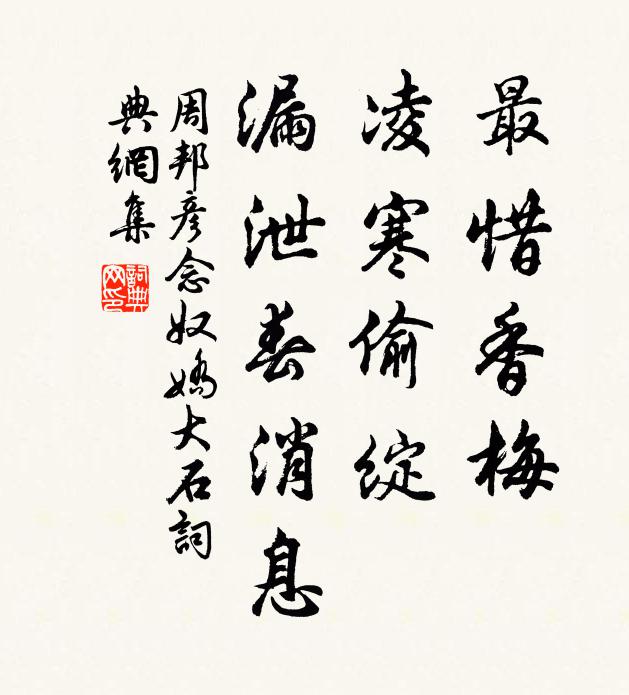 最惜香梅
凌寒偷綻
漏泄春消息
周邦彦念奴嬌大石詞
典網集
詞典網印